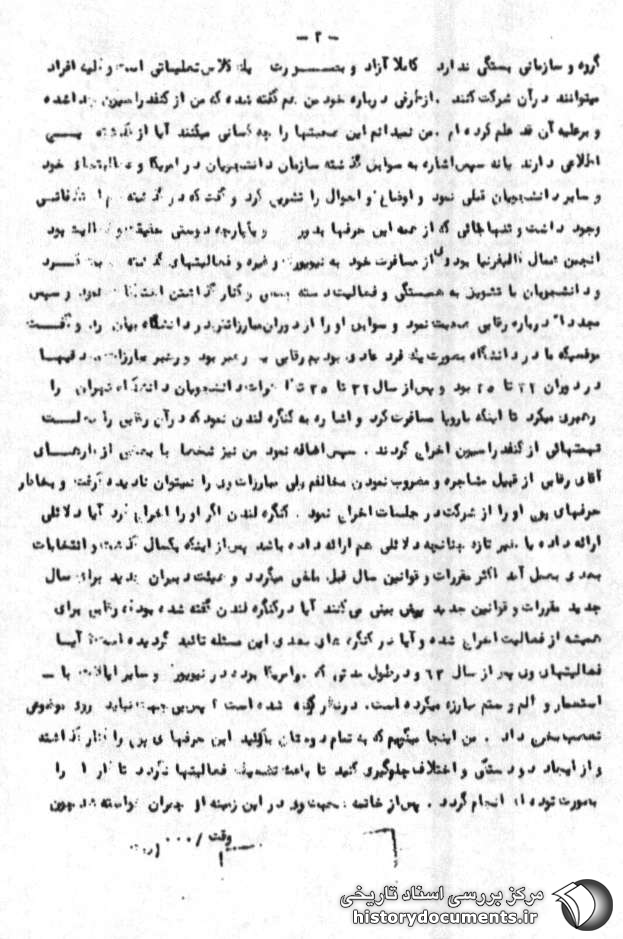 - ۲ -
گروه و سازمانی بستگی ندارد کاملا آزاد و بصورت یک کلاس تعلیماتی است و کلیه افراد
میتوانند در آن شرکت کنند . از طرفی درباره خود من هم گفته شده که من از کنفدراسیون جدا شده
و برعلیه آن قد علم کرده ام . من نمیدانم این صحبتها را چه کسانی میکنند آیا از گذشته
اطلاعی دارند یا نه سپس اشاره به سوابق گذشته سازمان دانشجویان در امریکا و فعالیتهای خود
و سایر دانشجویان قبلی نمود و اوضاع و احوال را تشریح کرد و گفت که در گذشته هم
وجود داشت و تنها جائی که از همه این حرفها بدور و یکپارچه دوستی حقیقت و فعالیت بود
انجمن شمال کالیفرنیا بود و از مسافرت خود به نیویورک و غیره و فعالیتهای گذشته
و دانشجویان را تشویق به همبستگی و فعالیت دسته جمعی و کنار گذاشتن نمود و سپس
مجددا درباره رقابی صحبت نمود و سوابق او را از دوران مبارزاتش در دانشگاه بیان کرد و گفت
موقعیکه ما در دانشگاه بصورت یک فرد عادی بودیم رقابی یک رهبر بود و رهبر مبارزات
در دوران ۳۲ تا ۳۵ بود و پس از سال ۳۲ تا ۳۵ دانشجویان دانشگاه تهران را
رهبری میکرد تا اینکه باروپا مسافرت کرد و اشاره به کنگره لندن نمود که در آن رقابی را به علت
تهمتهائی از کنفدراسیون اخراج کردند . سپس اضافه نمود من نیز شخصا با بعضی از کارهای
آقای رقابی از قبیل مشاجره و مضروب نمودن مخالفم ولی مبارزات وی را نمیتوان نادیده گرفت و بخاطر
حرفهای پوچ او را از شرکت در جلسات اخراج نمود . کنگره لندن اگر او را اخراج کرد آیا دلائلی
ارائه داده یا خیر تازه چنانچه دلائلی هم ارائه داده باشد پس از اینکه یکسال گذشت و انتخابات
بعدی بعمل آمد اکثر مقررات و قوانین سال قبل ملغی میگردد و هیئت دبیران جدید برای سال
جدید مقررات و قوانین جدید پیش بینی می کنند آیا در کنگره لندن گفته شده بود که رقابی برای
همیشه از فعالیت اخراج شده و آیا در کنگره های بعدی این مسئله تائید گردیده است آیا
فعالیتهای وی پس از سال ۶۳ و در طول مدتی که در امریکا بوده در نیویورک و سایر ایالات با -
استعمار و ظلم و ستم مبارزه میکرده است . در نظر گرفته شده است ؟ پس بی جهت نباید روی موضوعی
تعصب بخرج داد . من اینجا میگویم که به تمام دوستان بگوئید این حرفهای پوچ را کنار گذاشته
و از ایجاد دو دستگی و اختلاف جلوگیری کنید تا باعث تضعیف فعالیتها نگردد تا کارها را
بصورت توده ای انجام گردد . پس از خاتمه صحبت وی در این زمینه از چمران خواسته شد چون
وقت / ۰۰۰
مرکز بررسی اسناد تاریخی
historydocuments.ir